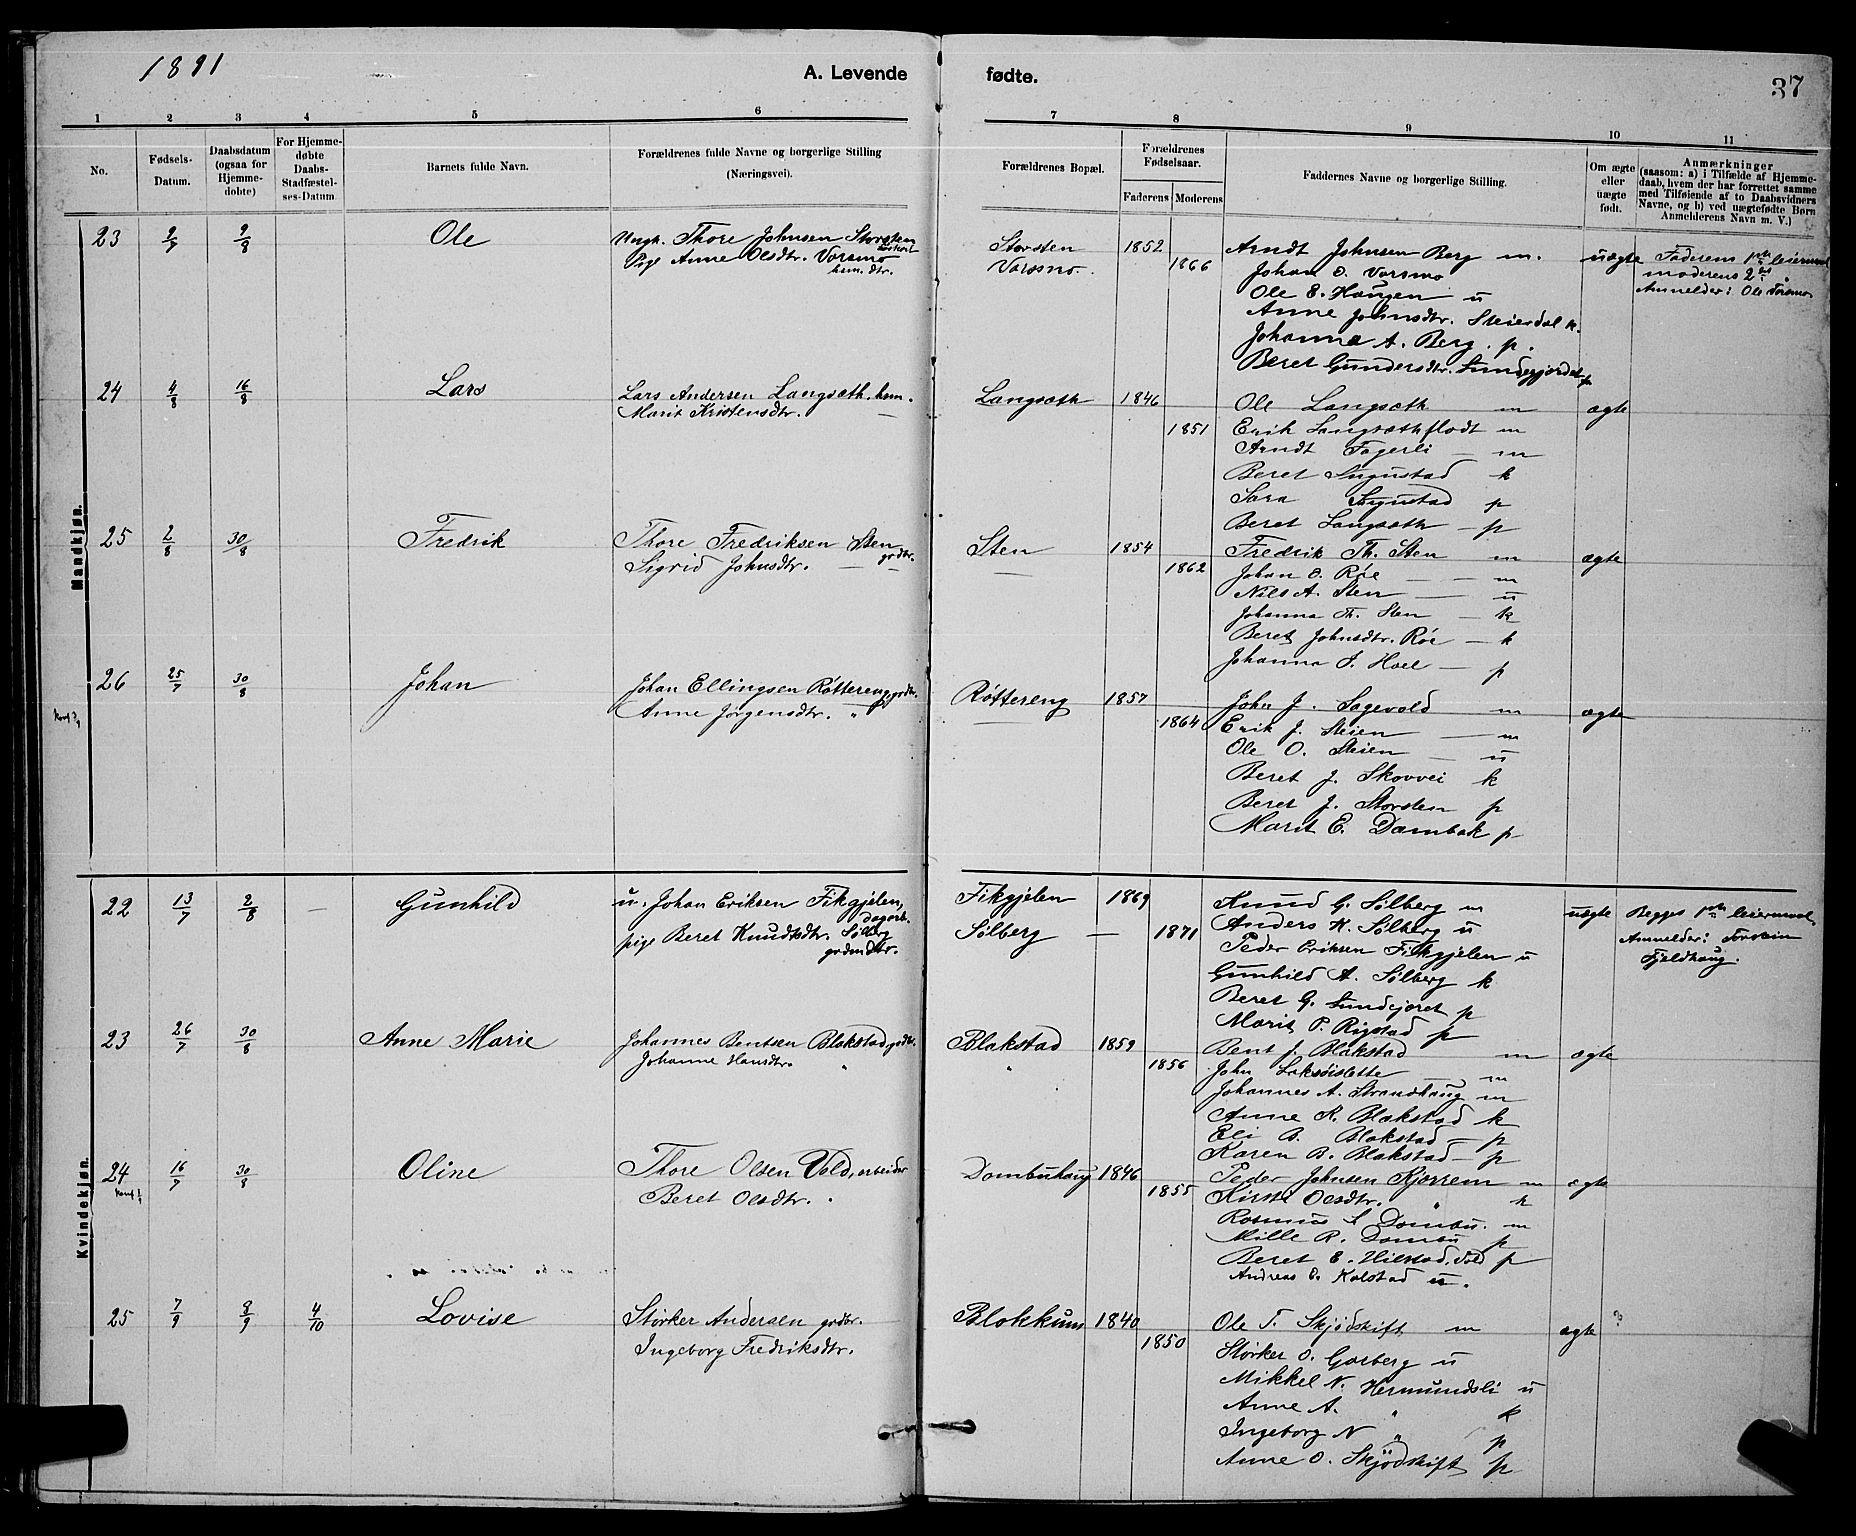 1891
A. Levende fødte.
37
1 2 3 4 5 6 7 8 9 10 11
No.
Fødsels-Datum.
Daabsdatum (ogsaa for Hjemme-døbte)
For Hjemme-døbte Daabs-Stadfæstel-ses-Datum.
Barnets fulde Navn.
Forældrenes fulde Navne og borgerlige Stilling (Næringsvei).
Forældrenes Bopæl.
Forældrenes Fødselsaar.
Faderens Moderens
Faddernes Navne og borgerlige Stilling.
Om ægte eller uægte født.
Anmærkninger
(saasom: a) i Tilfælde af Hjemme-
daab, hvem der har forrettet samme
med Tilføiende af to Daabsvidners
Navne, og b) ved uægtefødte Børn
Anmelderens Navn m. V.)
Mandkjøn.
23 9/8 Ole
Ungk. Thore Johnsen Storsten
Pige Anne Olsdtr. Vorsmo
hsm. dtr.
Storsten 1852
Vorsmo. 1866
Arndt Johnsen Berg m.
Johan O. Vorsmo
Ole E. Haugen u
Anne Johnsdtr. Steierdal k.
Johanna A. Berg. p.
Beret Gundersdtr. Sundegjordet p
uægte
Faderens 1ste leiermaal
moderens 2det
Anmelder: Ole Vorsmo
24 4/8 16/8 Lars
Lars Andersen Langsæth. hsm.
Marit Kristensdtr. —
Langsæth 1846
1851
Ole Langsæth m
Erik Langsæthflodt m
Arndt Fagerli — m
Beret Sugustad k
Sara Sugustad p
Beret Langsæth — p
ægte
25 2/8 30/8 Fredrik
Thore Fredriksen Sten grdbr.
Sigrid Johnsdtr. — —
Sten 1854
1862
Fredrik Th. Sten m
Johan O. Røe — — m
Nils A. Sten — u
Johanna Th. Sten — k
Beret Johnsdtr. Røe — k
Johanna J. Hoel — p
ægte
26 25/7 30/8 Johan
Johan Ellingsen Røttereng, grdbr.
Anne Jørgensdtr. "
Røttereng 1857
1864
John J. Sagevold m
Erik J. Steien — m
Ole O. Steien — u
Beret J. Skovvei k
Beret J. Storsten p
Marit E. Dambak p
ægte
Kvindekjøn.
22 13/7 2/8 — Gunhild
u. Johan Eriksen Fikgjelen,
dagarb.
pige Beret Knudsdtr. Sølberg
grdmdtr.
Fikgjelen 1869
Sølberg — 1871
Knud G. Sølberg m
Anders K. Sølberg u
Peder Eriksen Fikgjelen u
Gunhild A. Sølberg k
Beret G. Sundejoret p
Marit P. Rigstad p
uægte
Begges 1ste leiermaal
Anmelder: Torstein
Fjeldhaug.
23 26/7 30/8 Anne Marie
Johannes Bentsen Blakstad grdbr.
Johanne Hansdtr. "
Blakstad 1859
" 1856
Bent J. Blakstad m
John Laksøislette — m
Johannes A. Strandhaug m
Anne K. Blakstad k
Eli B. Blakstad — p
Karen B. Blakstad — p
ægte
24 16/7 30/8 Oline
Thore Olsen Vold, arbeider
Beret Olsdtr. "
Dombuhaug 1846
1855
Peder Johnsen Kjørrem m
Kirsti Olsdtr. " k
Rasmus A Dombu. m
Mille R. Dombu p
Beret E. Hilstad, Vold p
Andreas O. Kolstad u.
ægte
25 7/9 8/9 4/10 Lovise
Størker Andersen grdbr.
Ingeborg Fredriksdtr.
Blokkum 1840
1850
Ole T. Skjødskift m
Størker O. Garberg u
Mikkel N. Hermundsli u
Anne A. " k
Ingeborg N " p
Anne O. Skjødskift p
ægte
?